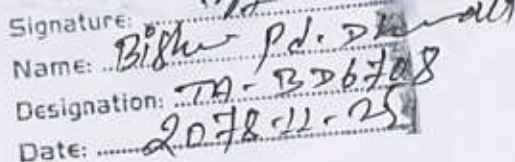 Signature:
Name: Bishnu Pd.
Designation: TA-BD6708
Date: 2078-11-25